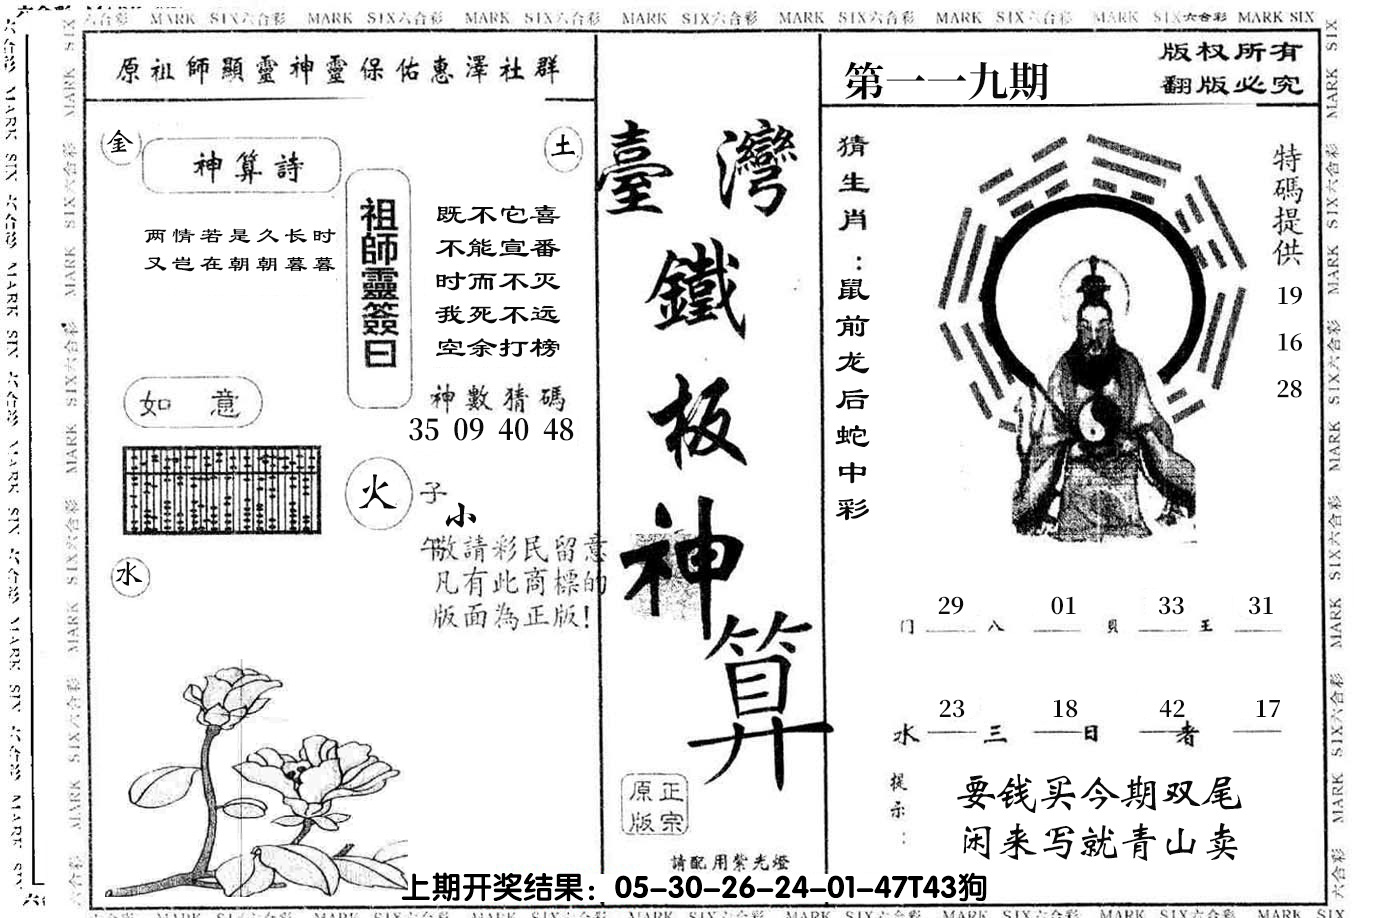 六合彩 MARK SIX六合彩 MARK SIX六合彩 MARK SIX六合彩 MARK SIX六合彩 MARK SIX六合彩 MARK SIX六合彩 MARK SIX六合彩 MARK SIX
原祖師顯靈神靈保佑惠澤社群
金
神算詩
土
两情若是久长时
又岂在朝朝暮暮
祖師靈簽曰
既不它喜
不能宣番
时而不灭
我死不远
空余打榜
神數猜碼
35 09 40 48
如意
火
子
小
午
敬請彩民留意
凡有此商標的
版面為正版!
水
臺灣
鐵
板
神
算
正宗
原版
請配用紫光燈
第一一九期
版权所有
翻版必究
猜生肖:鼠前龙后蛇中彩
特碼提供
19
16
28
29 01 33 31
门 八 貝 王
23 18 42 17
水 三 日 者
提示:
要钱买今期双尾
闲来写就青山卖
上期开奖结果：05-30-26-24-01-47T43狗